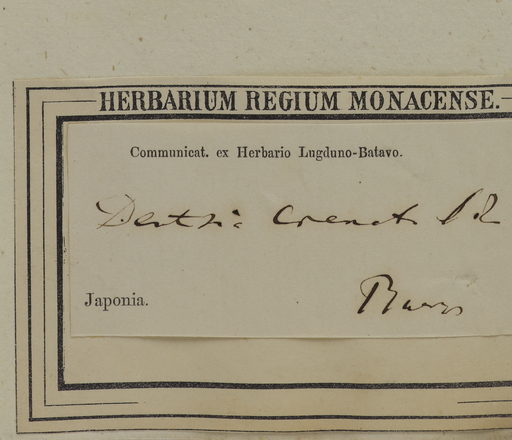 HERBARIUM REGIUM MONACENSE.
Communicat. ex Herbario Lugduno-Batavo.
Deutzia crenata
Japonia.